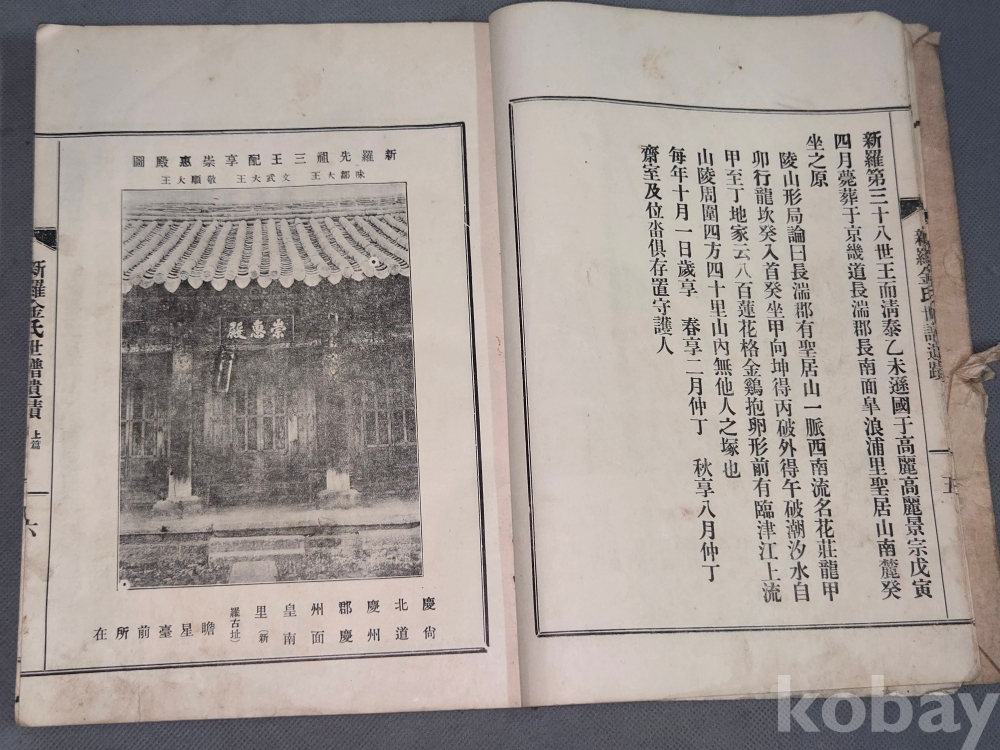 新羅第三十八世王而淸泰乙未遜國于高麗高麗景宗戊寅
四月薨葬于京畿道長湍郡長南面臯浪浦里聖居山南麓癸
坐之原
陵山形局論曰長湍郡有聖居山一脈西南流名花莊龍甲
卯行龍坎癸入首癸坐甲向坤得丙破外得午破潮汐水自
甲至丁地家云八百蓮花格金鷄抱卵形前有臨津江上流
山陵周圍四方四十里山內無他人之塚也
每年十月一日歲享 春享二月仲丁 秋享八月仲丁
齋室及位畓俱存置守護人
新羅金氏世譜遺蹟
五
新羅先祖三王配享崇惠殿圖
味鄒大王 文武大王 敬順大王
崇惠殿
慶尙北道慶州郡慶州面皇南里(新羅古址)瞻星臺前所在
新羅金氏世譜遺蹟 上篇
六
kobay